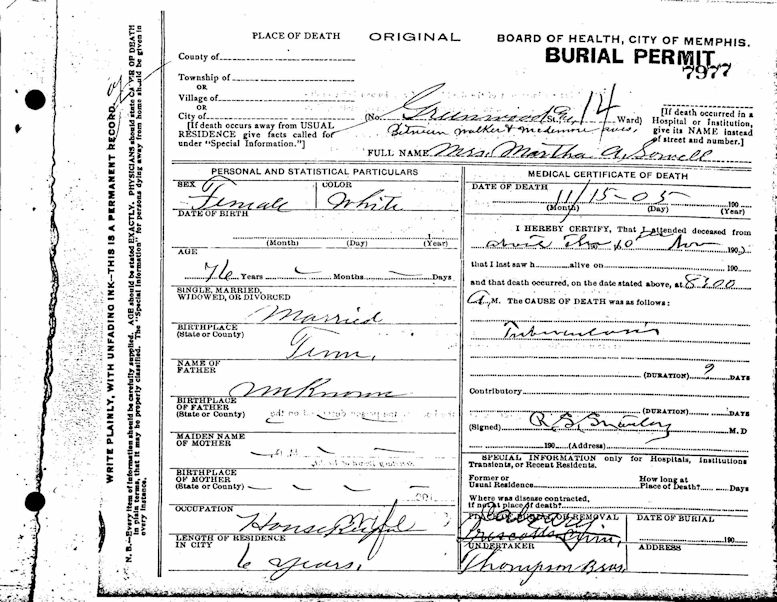 PLACE OF DEATH
ORIGINAL
BOARD OF HEALTH, CITY OF MEMPHIS.
BURIAL PERMIT
7977
County of
Township of
OR
Village of
OR
City of
[If death occurs away from USUAL
RESIDENCE give facts called for
under "Special Information."]
(No. Greenwood St.; 14 Ward)
Between Walker & avues.
[If death occurred in a
Hospital or Institution,
give its NAME instead
of street and number.]
FULL NAME Mrs. Martha A. Sowell
PERSONAL AND STATISTICAL PARTICULARS
SEX Female
COLOR White
DATE OF BIRTH
(Month) (Day) (Year)
AGE
76 Years — Months — Days
SINGLE, MARRIED,
WIDOWED, OR DIVORCED
Married
BIRTHPLACE
(State or County)
Tenn.
NAME OF
FATHER
unknown
BIRTHPLACE
OF FATHER
(State or County)
MAIDEN NAME
OF MOTHER
BIRTHPLACE
OF MOTHER
(State or County)
OCCUPATION
LENGTH OF RESIDENCE
IN CITY
6 years.
MEDICAL CERTIFICATE OF DEATH
DATE OF DEATH
11/15-05 190
(Month) (Day) (Year)
I HEREBY CERTIFY, That I attended deceased from
190
that I last saw h alive on 190
and that death occurred, on the date stated above, at 8:00
A. M. The CAUSE OF DEATH was as follows:
Tuberculosis
(DURATION) ? DAYS
Contributory
(DURATION) DAYS
(Signed) M.D
190 (Address)
SPECIAL INFORMATION only for Hospitals, Institutions
Transients, or Recent Residents.
Former or
Usual Residence
How long at
Place of Death? Days
Where was disease contracted,
if not at place of death?
PLACE OF BURIAL OR REMOVAL
DATE OF BURIAL
190
UNDERTAKER
Thompson Bros
ADDRESS
WRITE PLAINLY, WITH UNFADING INK—THIS IS A PERMANENT RECORD
N. B.—Every item of information should be carefully supplied. AGE should be stated EXACTLY. PHYSICIANS should state CAUSE OF DEATH
in plain terms, that it may be properly classified. The "Special Information" for persons dying away from home should be given in
every instance.